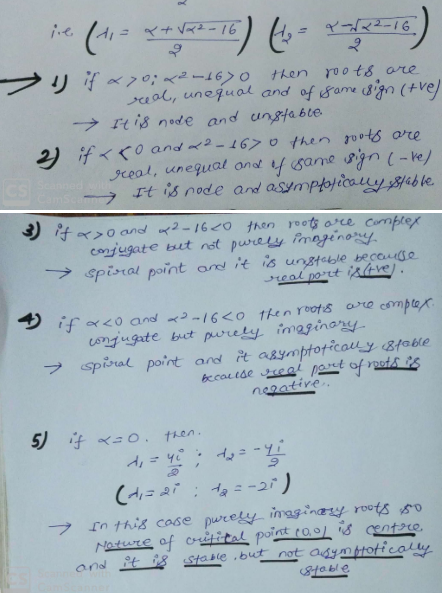 i.e (λ₁ = α+√α²-16 / 2) (λ₂ = α-√α²-16 / 2)
1) if α>0; α²-16>0 then roots are
real, unequal and of same sign (+ve)
→ It is node and unstable
2) if α<0 and α²-16>0 then roots are
real, unequal and of same sign (-ve)
→ It is node and asymptotically stable.
3) if α>0 and α²-16<0 then roots are complex
conjugate but not purely imaginary.
→ spiral point and it is unstable because
real part is (+ve).
4) if α<0 and α²-16<0 then roots are complex
conjugate but purely imaginary
→ spiral point and it asymptotically stable
because real part of roots is
negative.
5) if α=0. then.
λ₁ = 4i/2 ; λ₂ = -4i/2
(λ₁=2i ; λ₂=-2i)
→ In this case purely imaginary roots so
Nature of critical point (0,0) is centre
and it is stable but not asymptotically
stable
CS